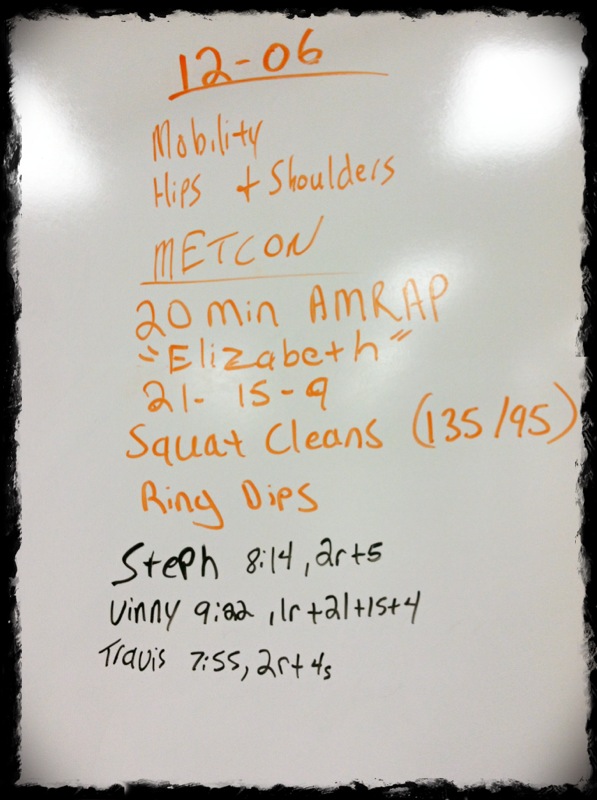 12-06
Mobility
Hips + Shoulders
METCON
20 min AMRAP
"Elizabeth"
21- 15-9
Squat Cleans (135/95)
Ring Dips
Steph 8:14, 2r+5
Vinny 9:22, 1r+21+15+4
Travis 7:55, 2r+4s